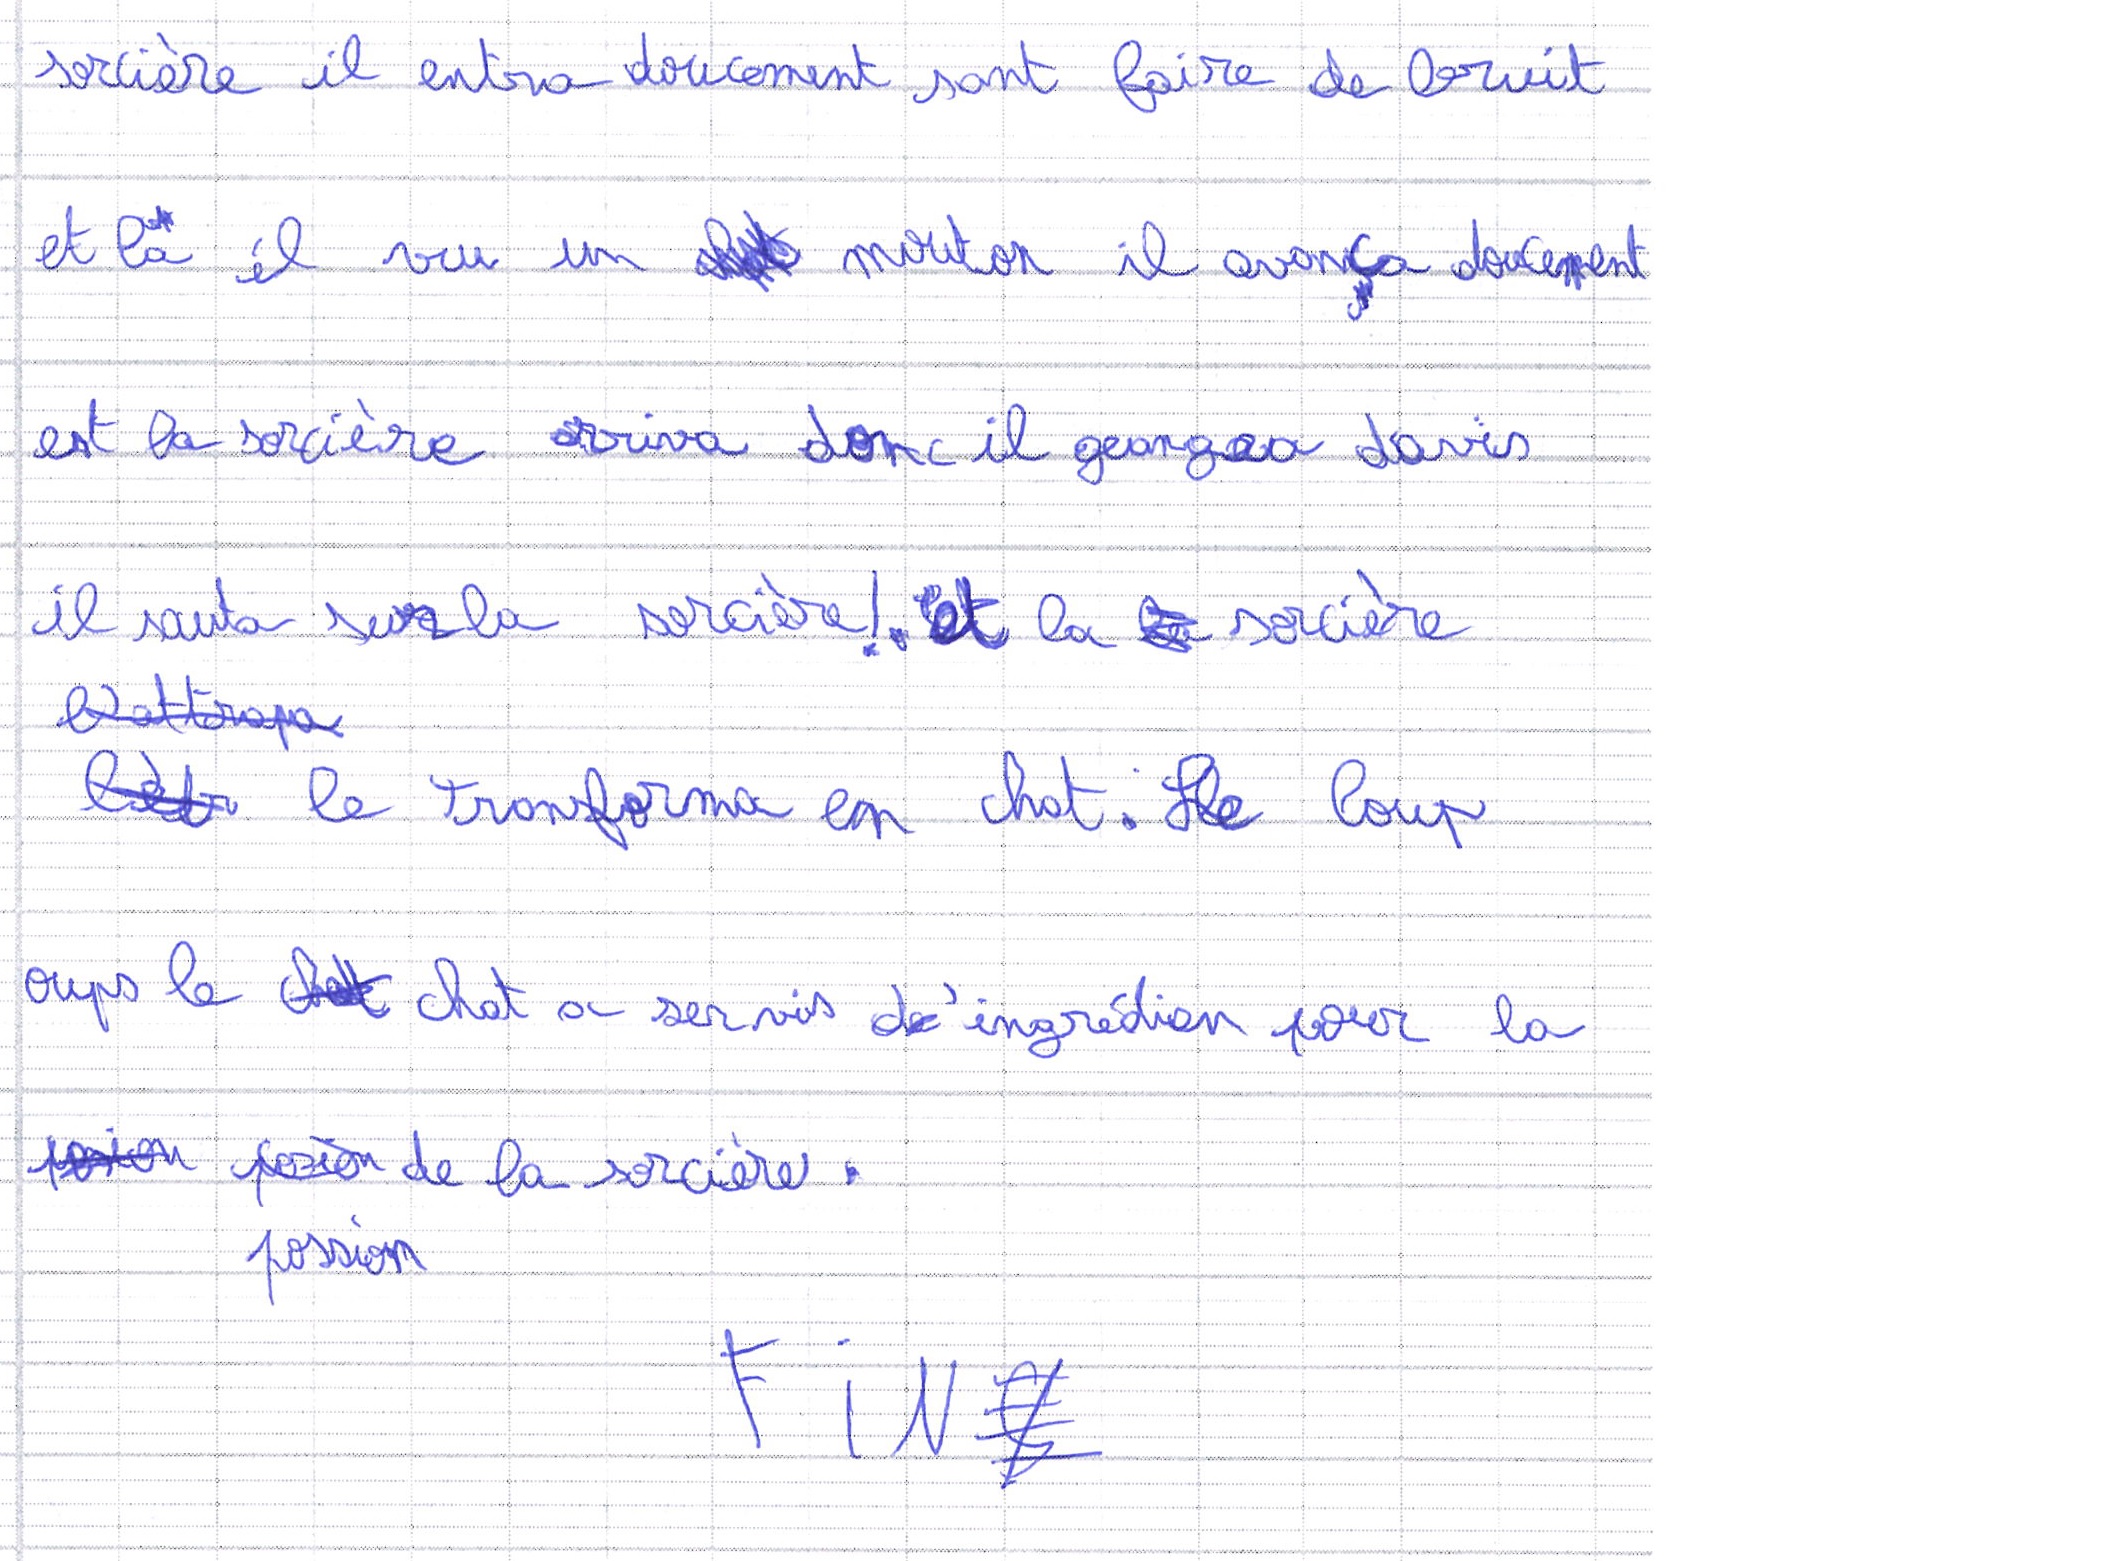 sorcière il entra doucement sant faire de bruit
et là il vu un mouton il avança doucement
est la sorcière arriva donc il geangea d'avis
il sauta sur la sorcière ! et la sorcière
l'attrapa
le tranforma en chat. Le loup
oups le chat chat a servis d'ingrédian pour la
posion pozion de la sorcière.
possion
FiN